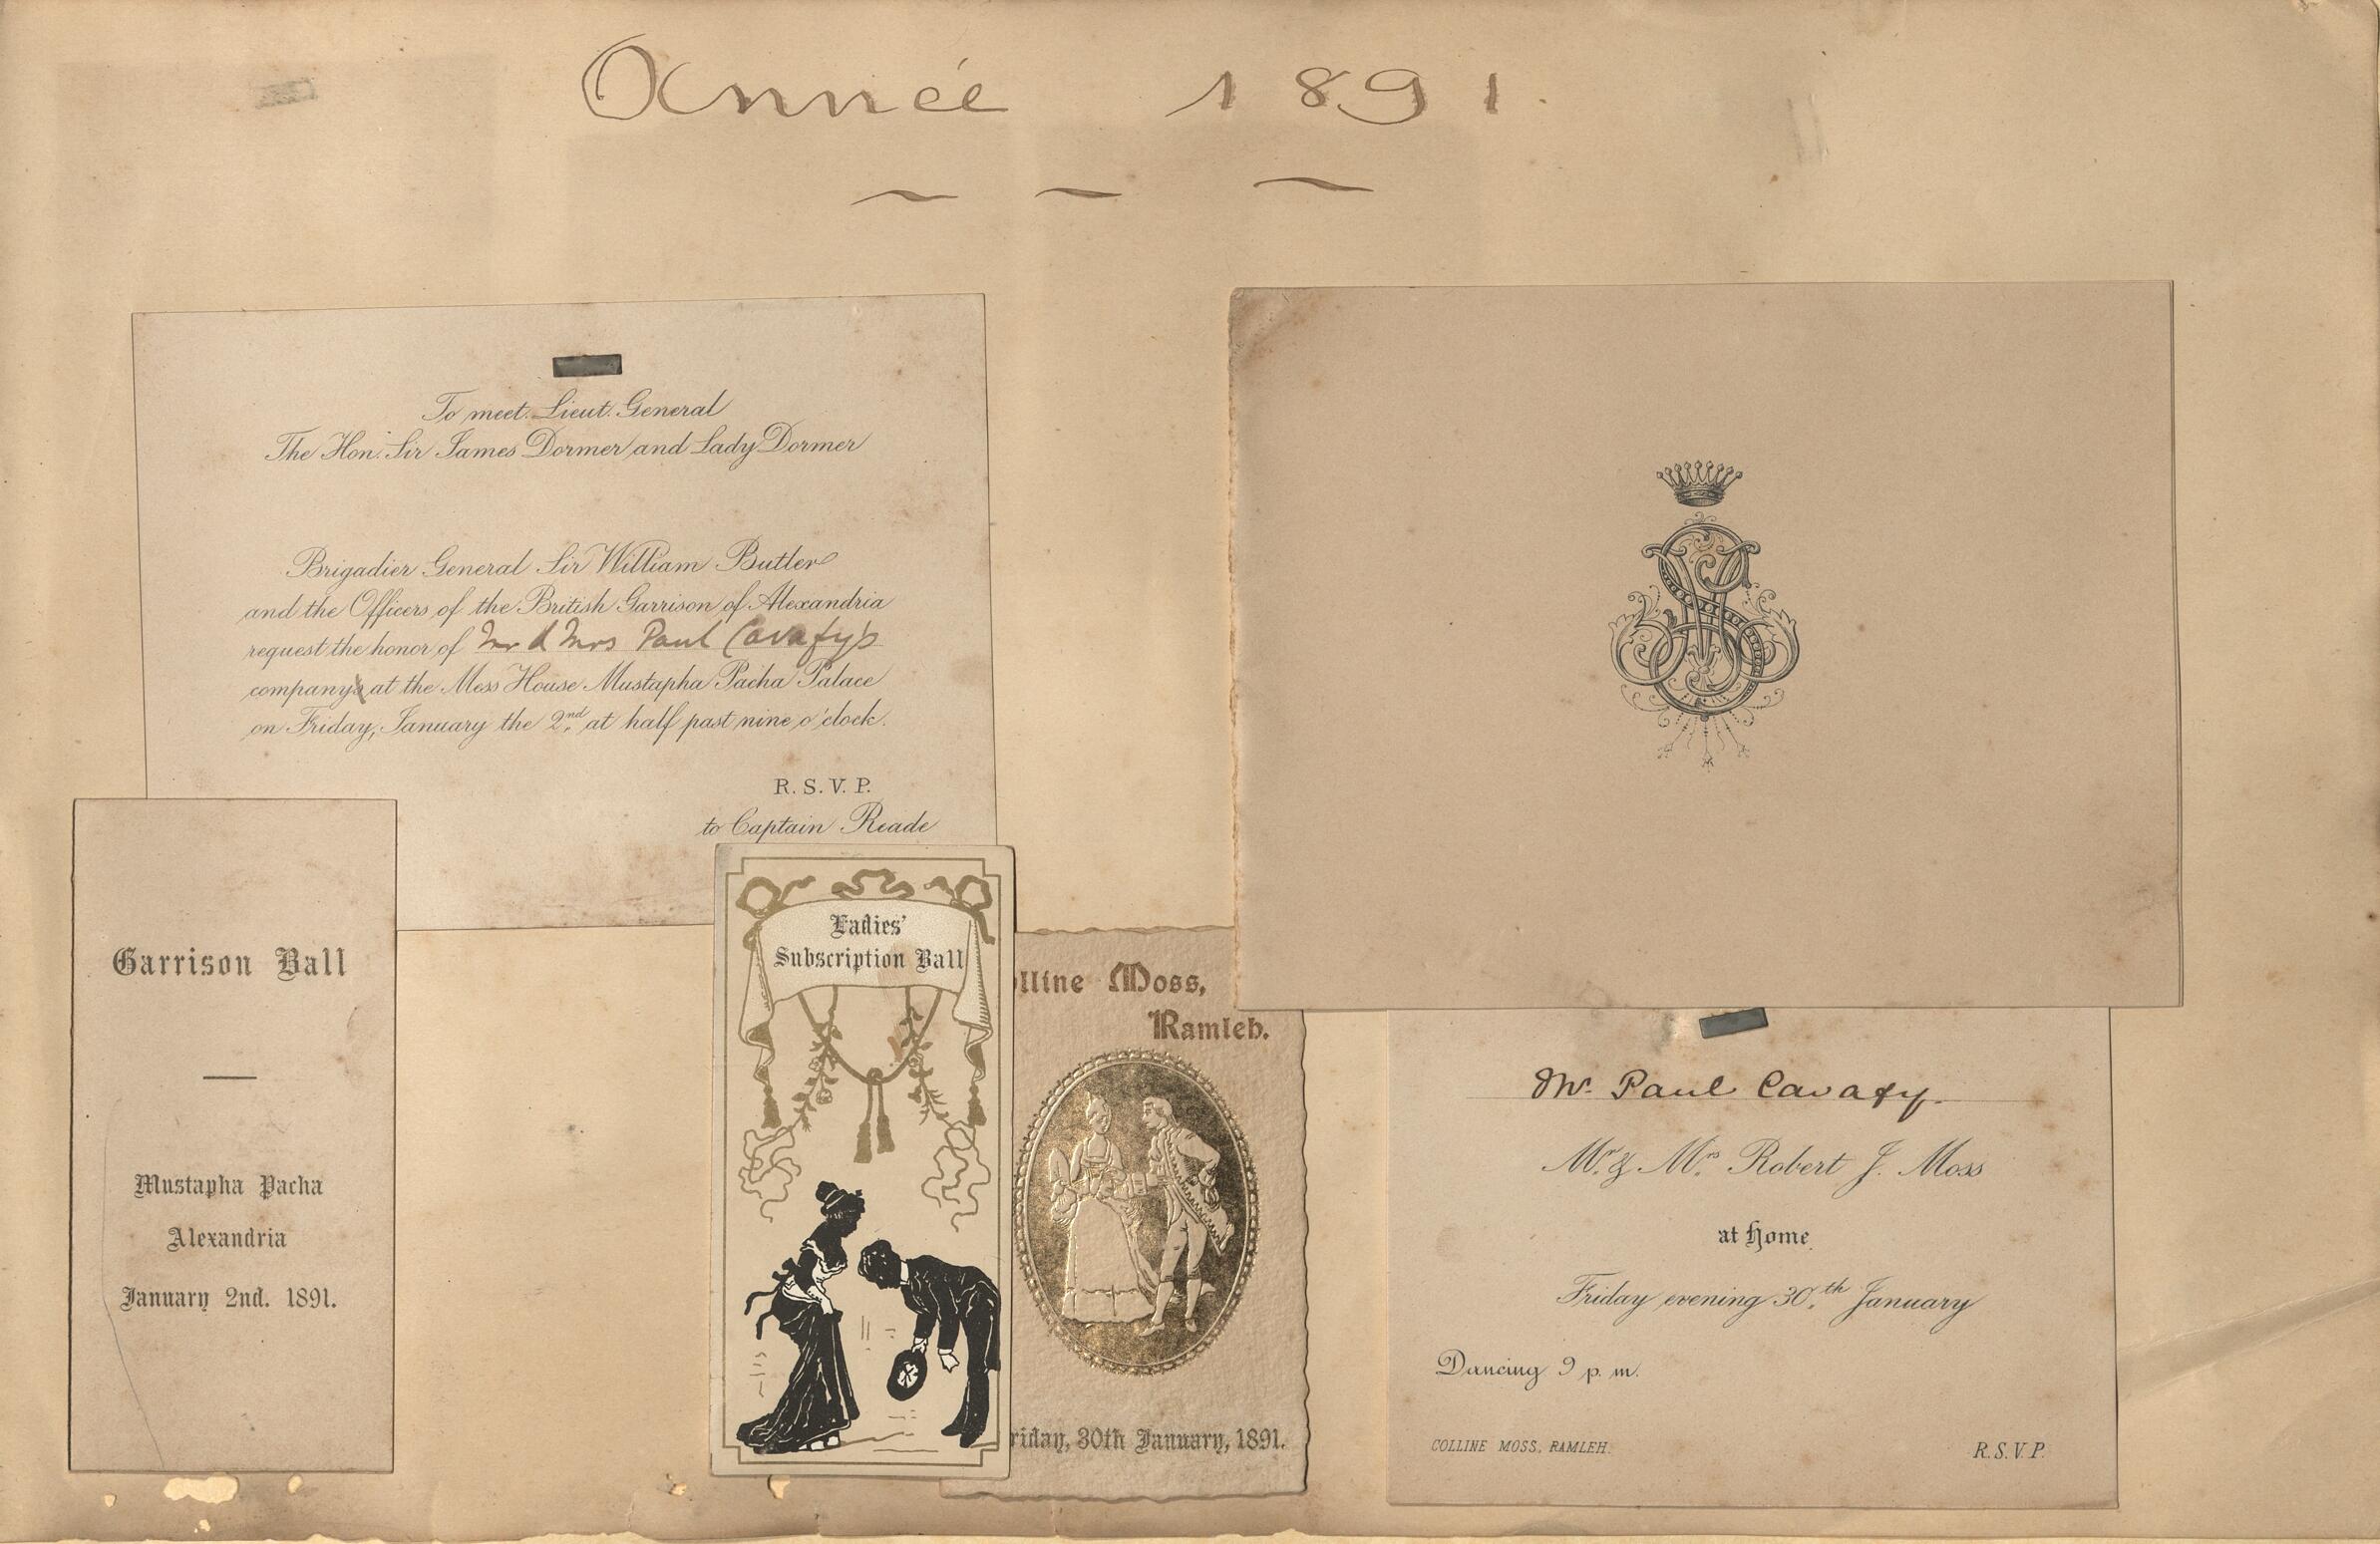 Année 1891.
To meet Lieut. General
The Hon. Sir James Dormer and Lady Dormer
Brigadier General Sir William Butler
and the Officers of the British Garrison of Alexandria
request the honor of Mr & Mrs Paul Cavafy's
company at the Mess House Mustapha Pacha Palace
on Friday, January the 2nd at half past nine o'clock.
R.S.V.P.
to Captain Reade
Garrison Ball
Mustapha Pacha
Alexandria
January 2nd. 1891.
Ladies'
Subscription Ball
olline Moss,
Ramleh.
riday, 30th January, 1891.
Mr. Paul Cavafy.
Mr. & Mrs. Robert J. Moss
at Home
Friday evening 30th January
Dancing 9 p. m.
COLLINE MOSS, RAMLEH.
R.S.V.P.